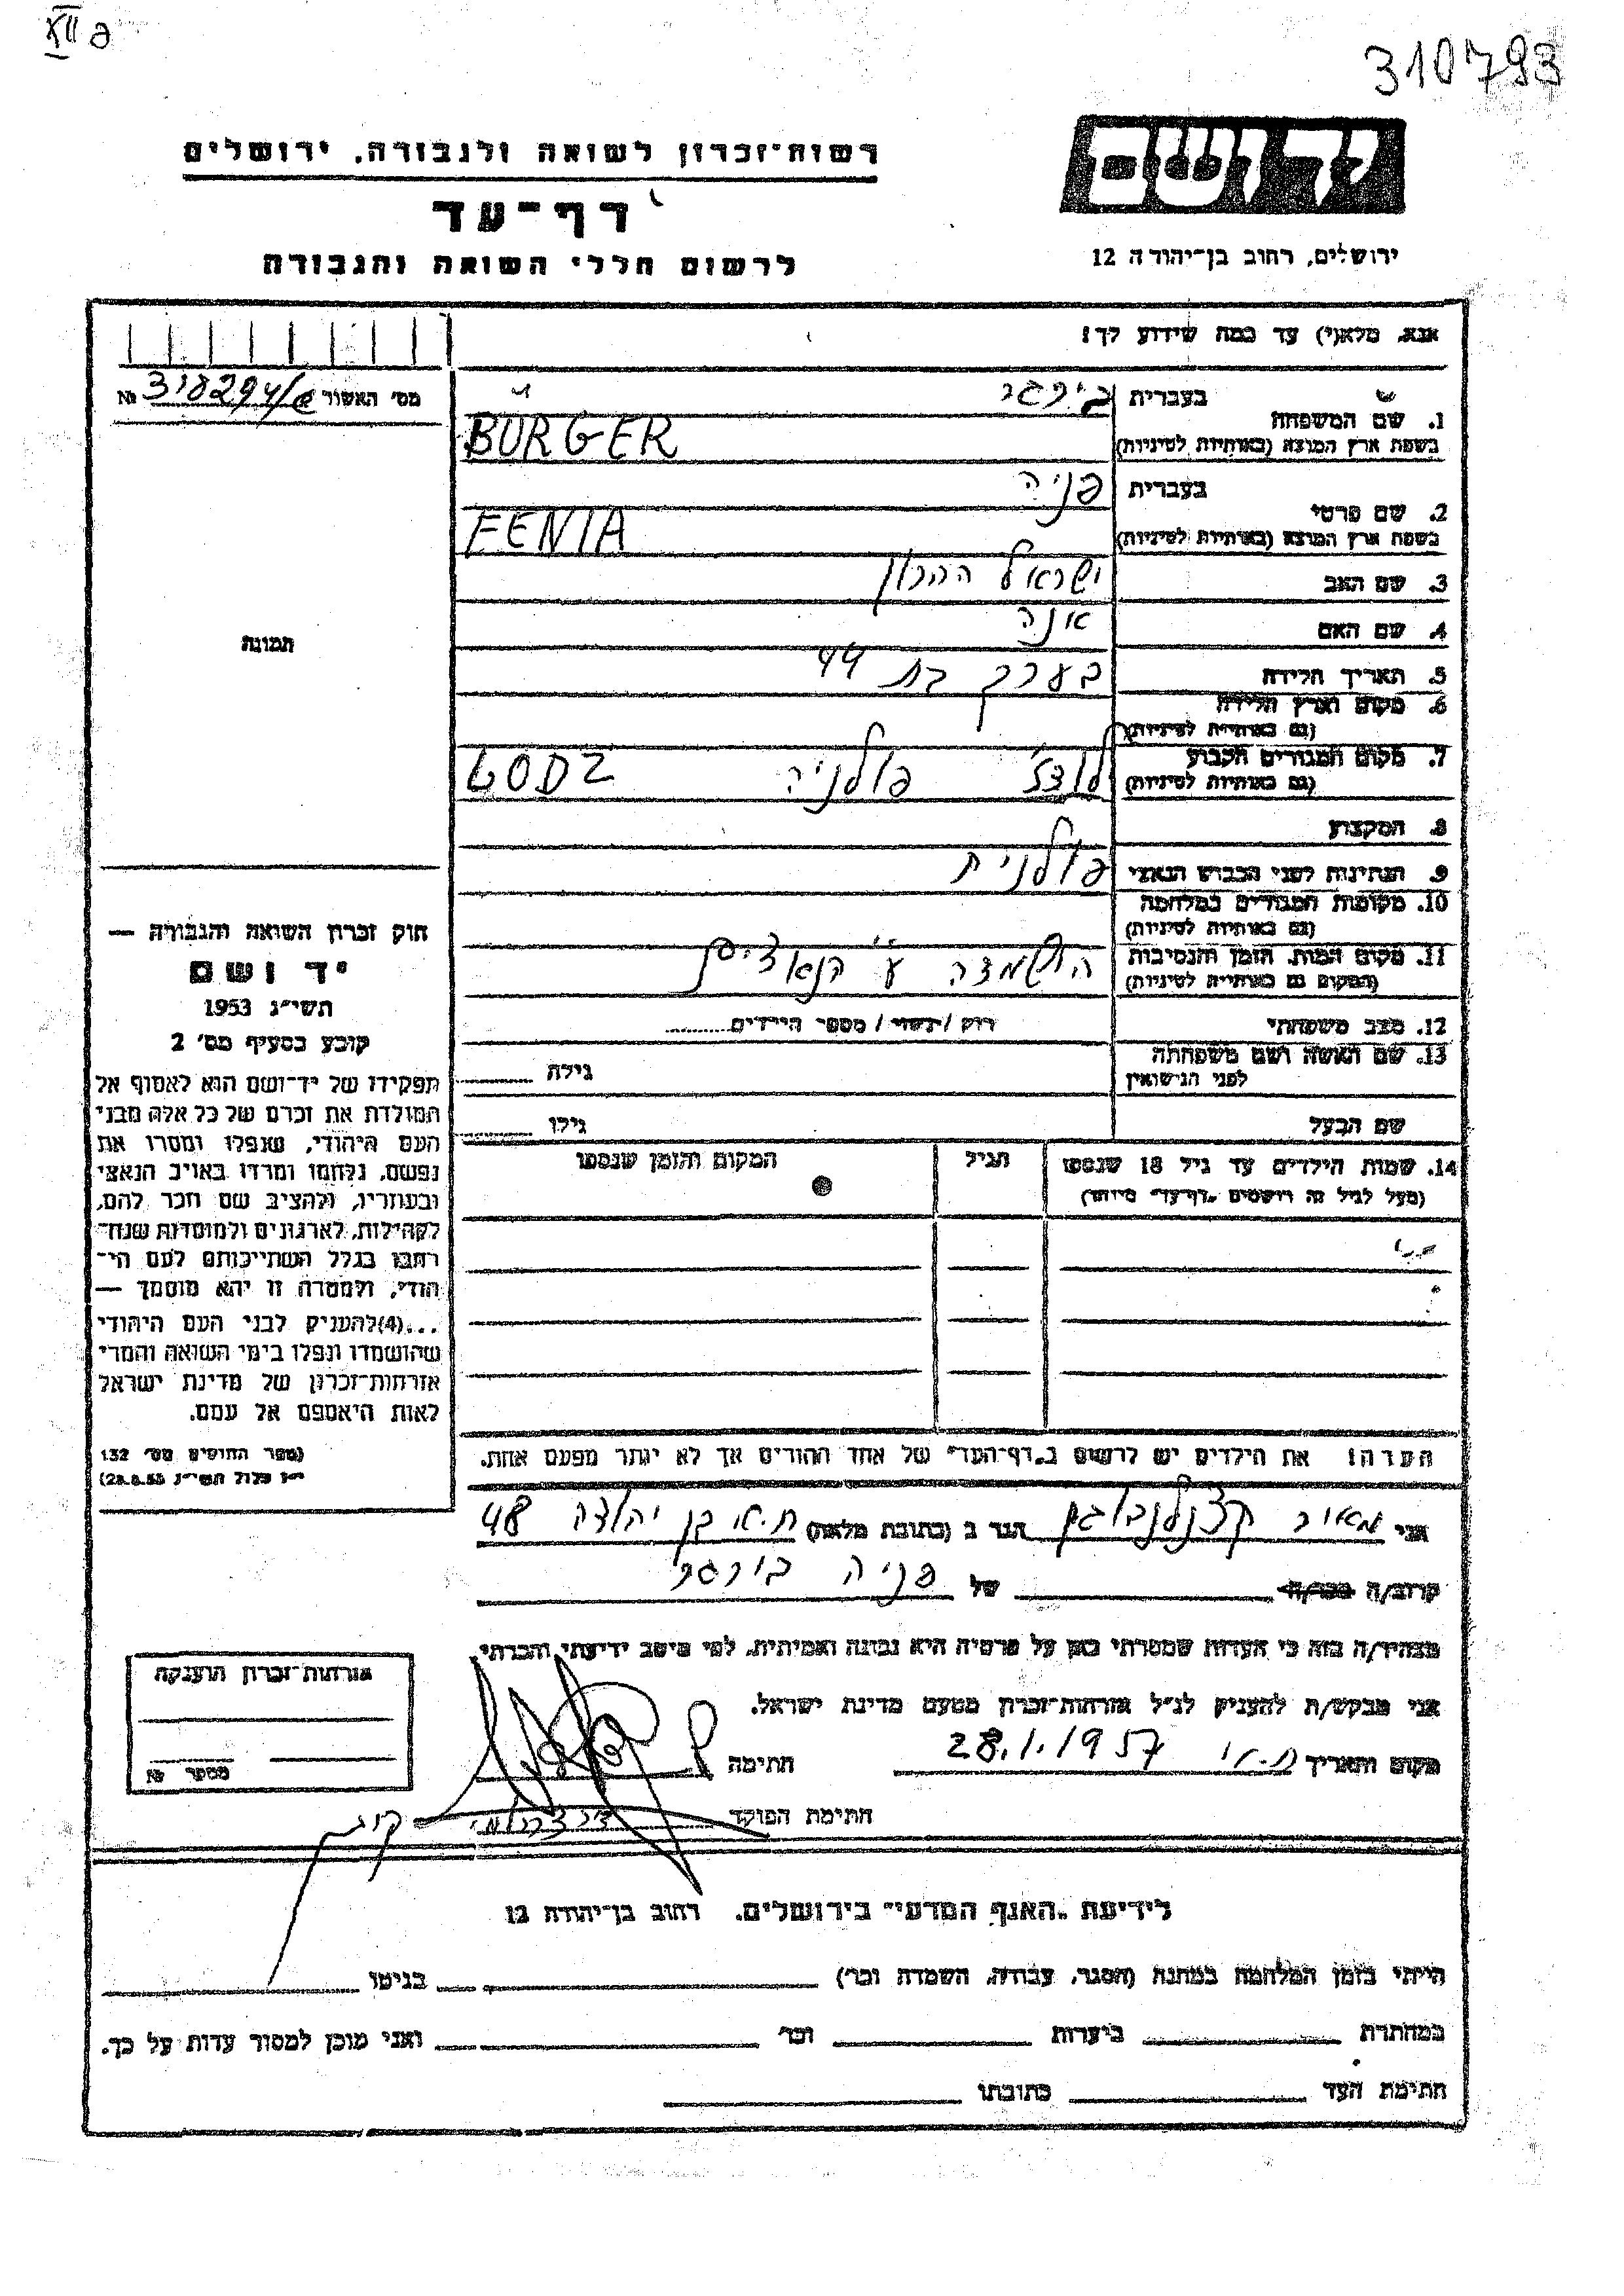 פ XII
310793
רשות-זכרון לשואה ולגבורה, ירושלים
דף-עד
לרשום חללי השואה והגבורה
ידושם
ירושלים, רחוב בן-יהודה 12
אנא, מלא(י) עד כמה שידוע לך!
מס' האשור №
1. שם המשפחה בעברית בורגר
בשפת ארץ המוצא (באותיות לטיניות) BURGER
2. שם פרטי בעברית פניה
בשפת ארץ המוצא (באותיות לטיניות) FENIA
3. שם האב ישראל אהרון
4. שם האם אנה
5. תאריך הלידה בערך בת 44
6. מקום וארץ הלידה
(גם באותיות לטיניות)
7. מקום המגורים הקבוע לודז' פולניה LODZ
(גם באותיות לטיניות)
8. המקצוע
9. הנתינות לפני הכבוש הנאצי פולנית
10. מקומות המגורים במלחמה
(גם באותיות לטיניות)
11. מקום המות, הזמן והנסיבות הושמדה ע"י הנאצים
(המקום גם באותיות לטיניות)
12. מצב משפחתי רוק / נשוי / מספר הילדים
13. שם האשה ושם משפחתה
לפני הנישואין גילה
שם הבעל גילו
14. שמות הילדים עד גיל 18 שנספו הגיל המקום והזמן שנספו
(מעל לגיל זה רושמים "דף-עד" מיוחד)
הערה: את הילדים יש לרשום ב"דף-העד" של אחד ההורים אך לא יותר מפעם אחת.
תמונה
חוק זכרון השואה והגבורה —
יד ושם
תשי"ג 1953
קובע בסעיף מס' 2
תפקידו של יד-ושם הוא לאסוף אל
המולדת את זכרם של כל אלה מבני
העם היהודי, שנפלו ומסרו את
נפשם, נלחמו ומרדו באויב הנאצי
ובעוזריו, ולהציב שם וזכר להם,
לקהילות, לארגונים ולמוסדות שנח-
רבו בגלל השתייכותם לעם הי-
הודי, ולמטרה זו יהא מוסמך —
...(4) להעניק לבני העם היהודי
שהושמדו ונפלו בימי השואה והמרי
אזרחות-זכרון של מדינת ישראל
לאות היאספם אל עמם.
(ספר החוקים מס' 132
י"ז אלול תשי"ג 28.8.53)
אני מאיר קצנלנבוגן הגר ב (כתובת מלאה) ת.א. בן יהודה 48
קרוב/ה מכר/ה של פניה בורגר
מצהיר/ה בזה כי העדות שמסרתי כאן על פרטיה היא נכונה ואמיתית, לפי מיטב ידיעתי והכרתי.
אני מבקש/ת להעניק לנ"ל אזרחות-זכרון מטעם מדינת ישראל.
מקום ותאריך ת.א. 28.1.1957 חתימה
חתימת הפוקד
אזרחות-זכרון הוענקה
מספר №
לידיעת "האגף המדעי" בירושלים, רחוב בן-יהודה 12
הייתי בזמן המלחמה במחנה (הסגר, עבודה, השמדה וכו') בגיטו
במחתרת ביערות וכו' ואני מוכן למסור עדות על כך.
חתימת העד כתובתו